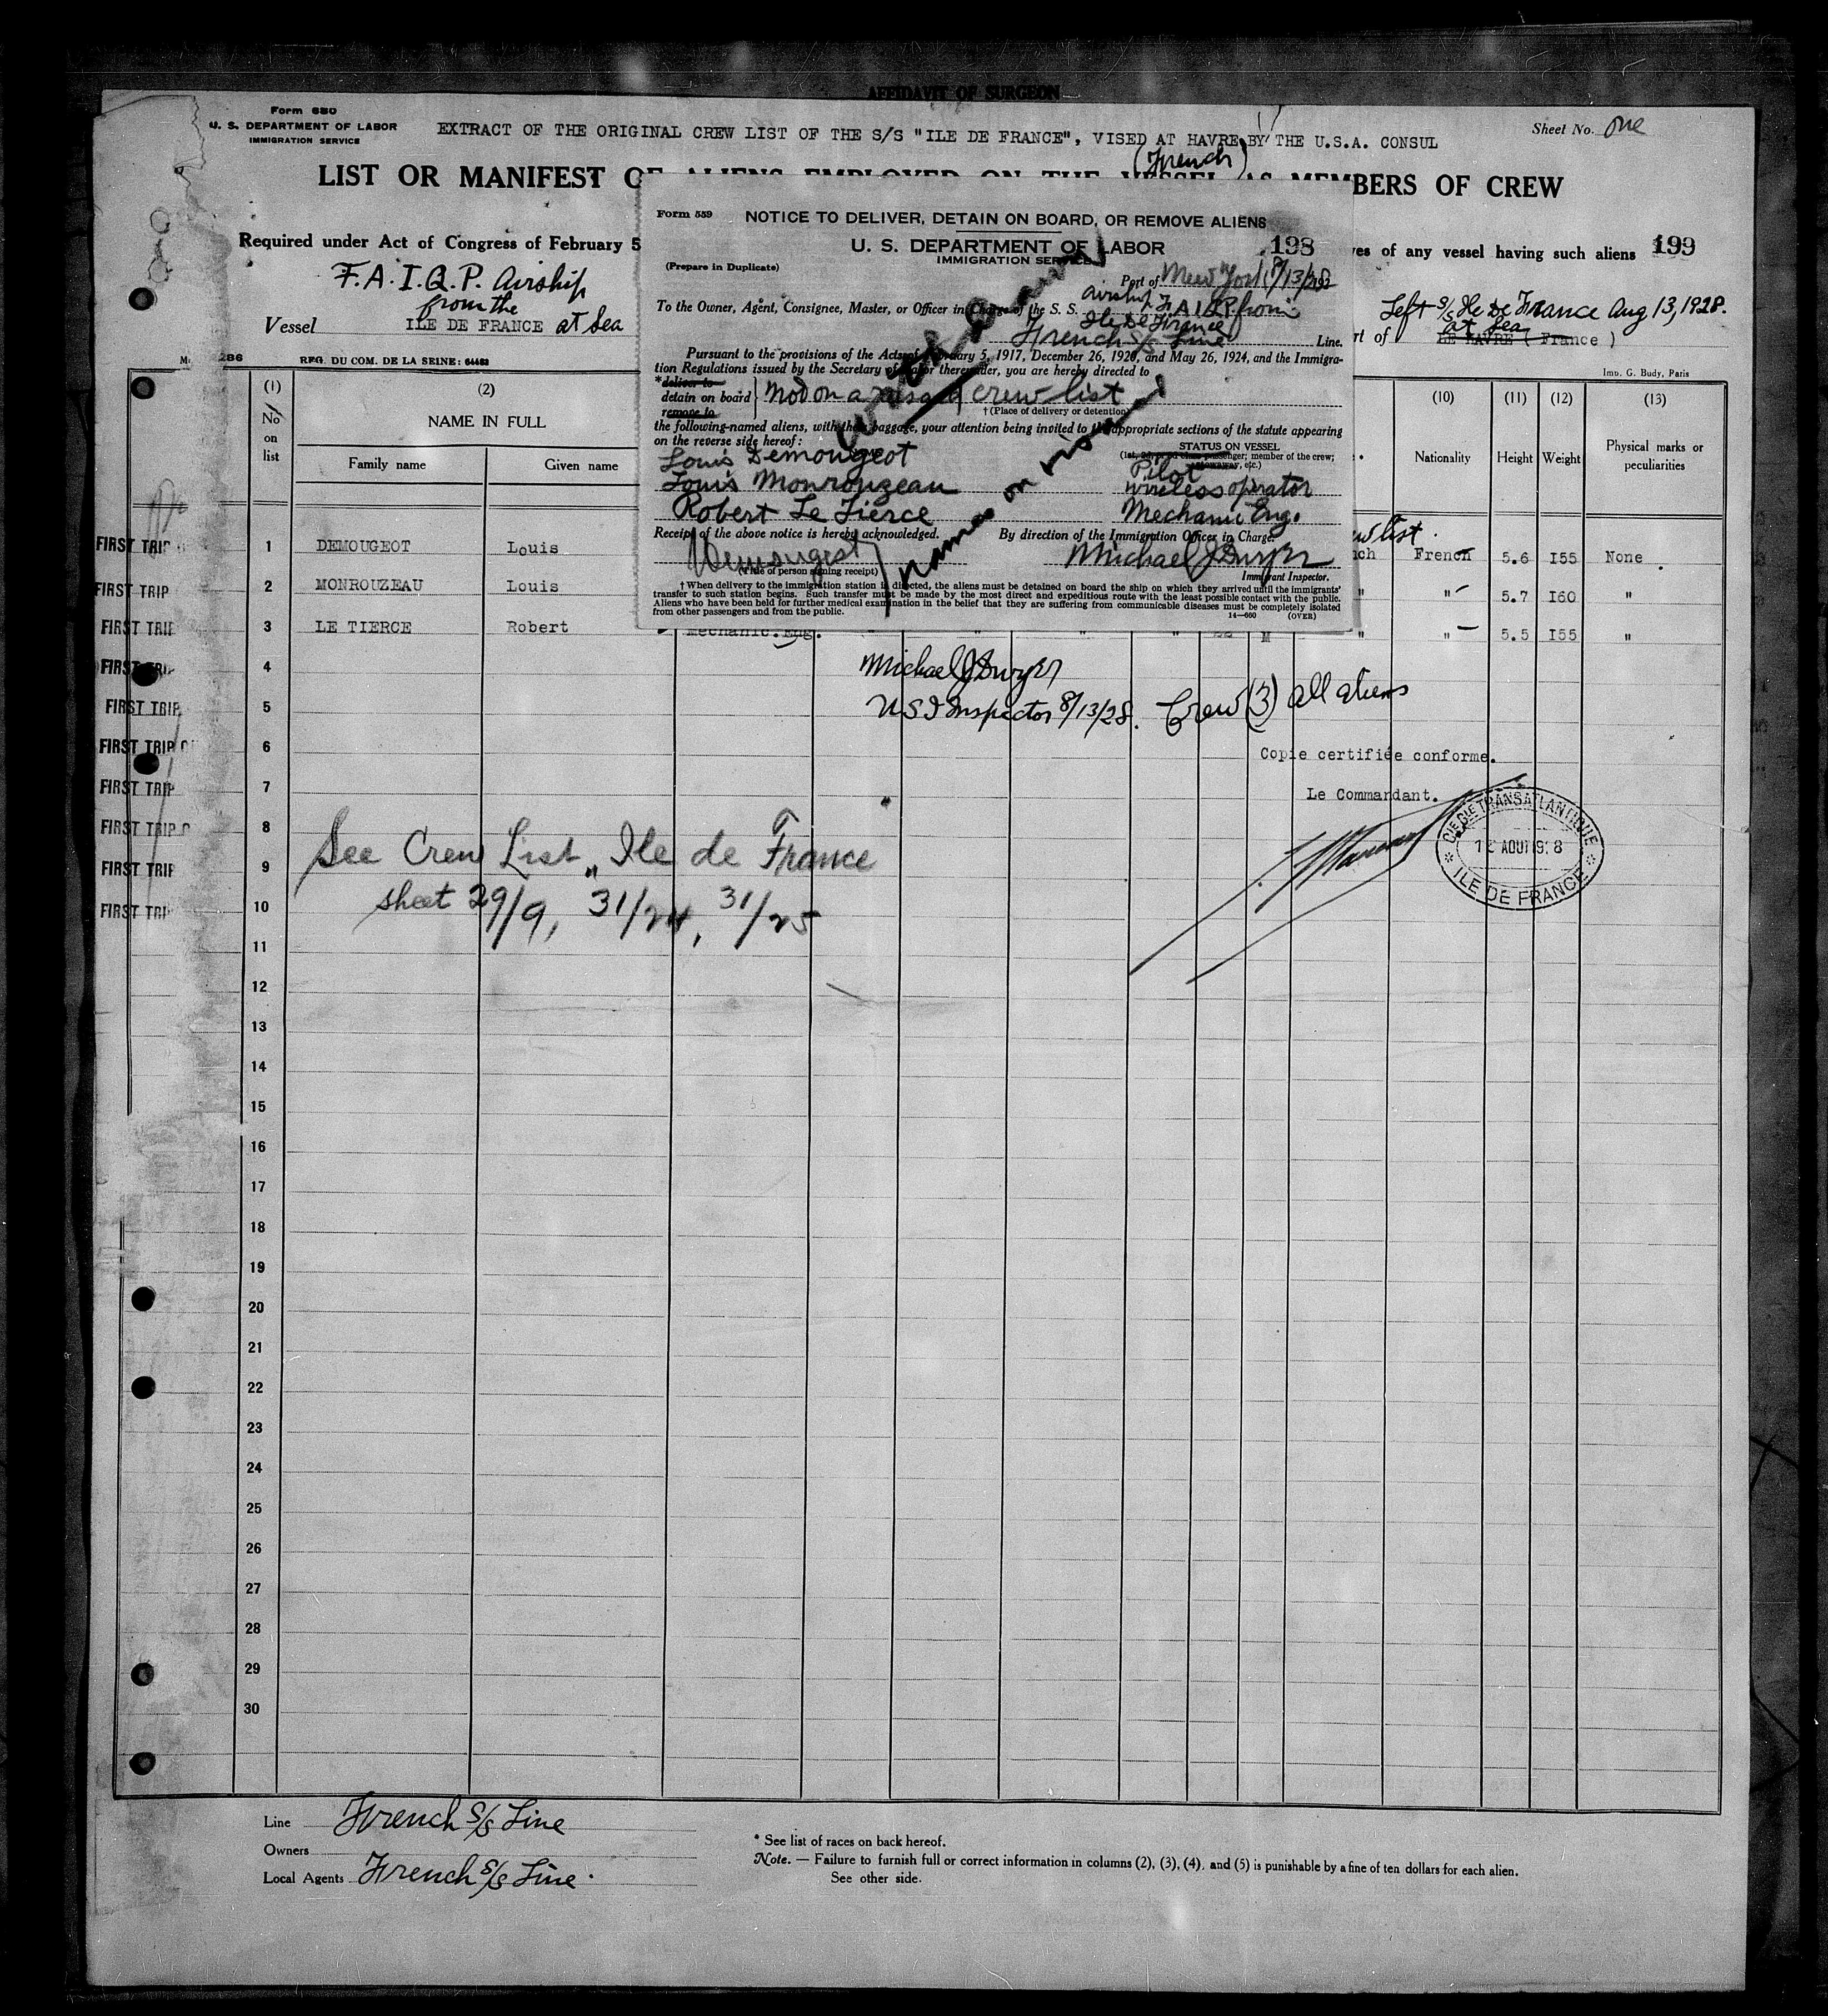 AFFIDAVIT OF SURGEON
Form 680
U. S. DEPARTMENT OF LABOR
IMMIGRATION SERVICE
EXTRACT OF THE ORIGINAL CREW LIST OF THE S/S "ILE DE FRANCE", VISED AT HAVRE BY THE U.S.A. CONSUL
Sheet No. one
(French)
LIST OR MANIFEST OF ALIENS EMPLOYED ON THE VESSEL AS MEMBERS OF CREW
Required under Act of Congress of February 5
ves of any vessel having such aliens 199
F.A.I.Q.P. Airship
from the
Vessel ILE DE FRANCE at Sea
Left S/S Ile De France Aug 13, 1928.
at Sea
rt of LE HAVRE ( France )
286
RFG. DU COM. DE LA SEINE: 64483
Imp. G. Budy, Paris
Form 559
NOTICE TO DELIVER, DETAIN ON BOARD, OR REMOVE ALIENS
U. S. DEPARTMENT OF LABOR
198
IMMIGRATION SERVICE
(Prepare in Duplicate)
Port of New York 8/13/28 192
To the Owner, Agent, Consignee, Master, or Officer in Charge of the S. S. airship F.A.I.Q.P. from
Ile De France
French S/S Line Line.
Pursuant to the provisions of the Acts of February 5, 1917, December 26, 1920, and May 26, 1924, and the Immigra-
tion Regulations issued by the Secretary of Labor thereunder, you are hereby directed to
*deliver to
detain on board } Not on a visaed crew list
remove to
† (Place of delivery or detention)
the following-named aliens, with their baggage, your attention being invited to the appropriate sections of the statute appearing
on the reverse side hereof:
STATUS ON VESSEL
(1st, 2d, or 3d class passenger; member of the crew;
stowaway, etc.)
Louis Demougeot Pilot
Louis Monrouzeau wireless operator
Robert Le Tierce Mechanic Eng.
Receipt of the above notice is hereby acknowledged.
By direction of the Immigration Officer in Charge.
Demougeot
Michael J Dwyer
(Title of person signing receipt)
Immigrant Inspector.
names on
† When delivery to the immigration station is directed, the aliens must be detained on board the ship on which they arrived until the immigrants'
transfer to such station begins. Such transfer must be made by the most direct and expeditious route with the least possible contact with the public.
Aliens who have been held for further medical examination in the belief that they are suffering from communicable diseases must be completely isolated
from other passengers and from the public.
14—660 (OVER)
(1) (2) (10) (11) (12) (13)
No on list
NAME IN FULL
Family name Given name
Nationality Height Weight Physical marks or peculiarities
list.
FIRST TRIP 1 DEMOUGEOT Louis nch French 5.6 I55 None
FIRST TRIP 2 MONROUZEAU Louis " " 5.7 I60 "
FIRST TRIP 3 LE TIERCE Robert Mechanic.Eng. " " " " 22 M " " 5.5 I55 "
FIRST TRIP 4
Michael J Dwyer
FIRST TRIP 5
U S I Inspector 8/13/28. Crew (3) all aliens
FIRST TRIP 6
Copie certifiée conforme.
FIRST TRIP 7
Le Commandant.
CIE GLE TRANSATLANTIQUE
AOUT
ILE DE FRANCE
FIRST TRIP 8
See Crew List "Ile de France
FIRST TRIP 9
sheet 29/9, 31/24, 31/25
FIRST TRIP 10
11
12
13
14
15
16
17
18
19
20
21
22
23
24
25
26
27
28
29
30
Line French S/S Line
Owners
Local Agents French S/S Line.
* See list of races on back hereof.
Note. — Failure to furnish full or correct information in columns (2), (3), (4), and (5) is punishable by a fine of ten dollars for each alien.
See other side.